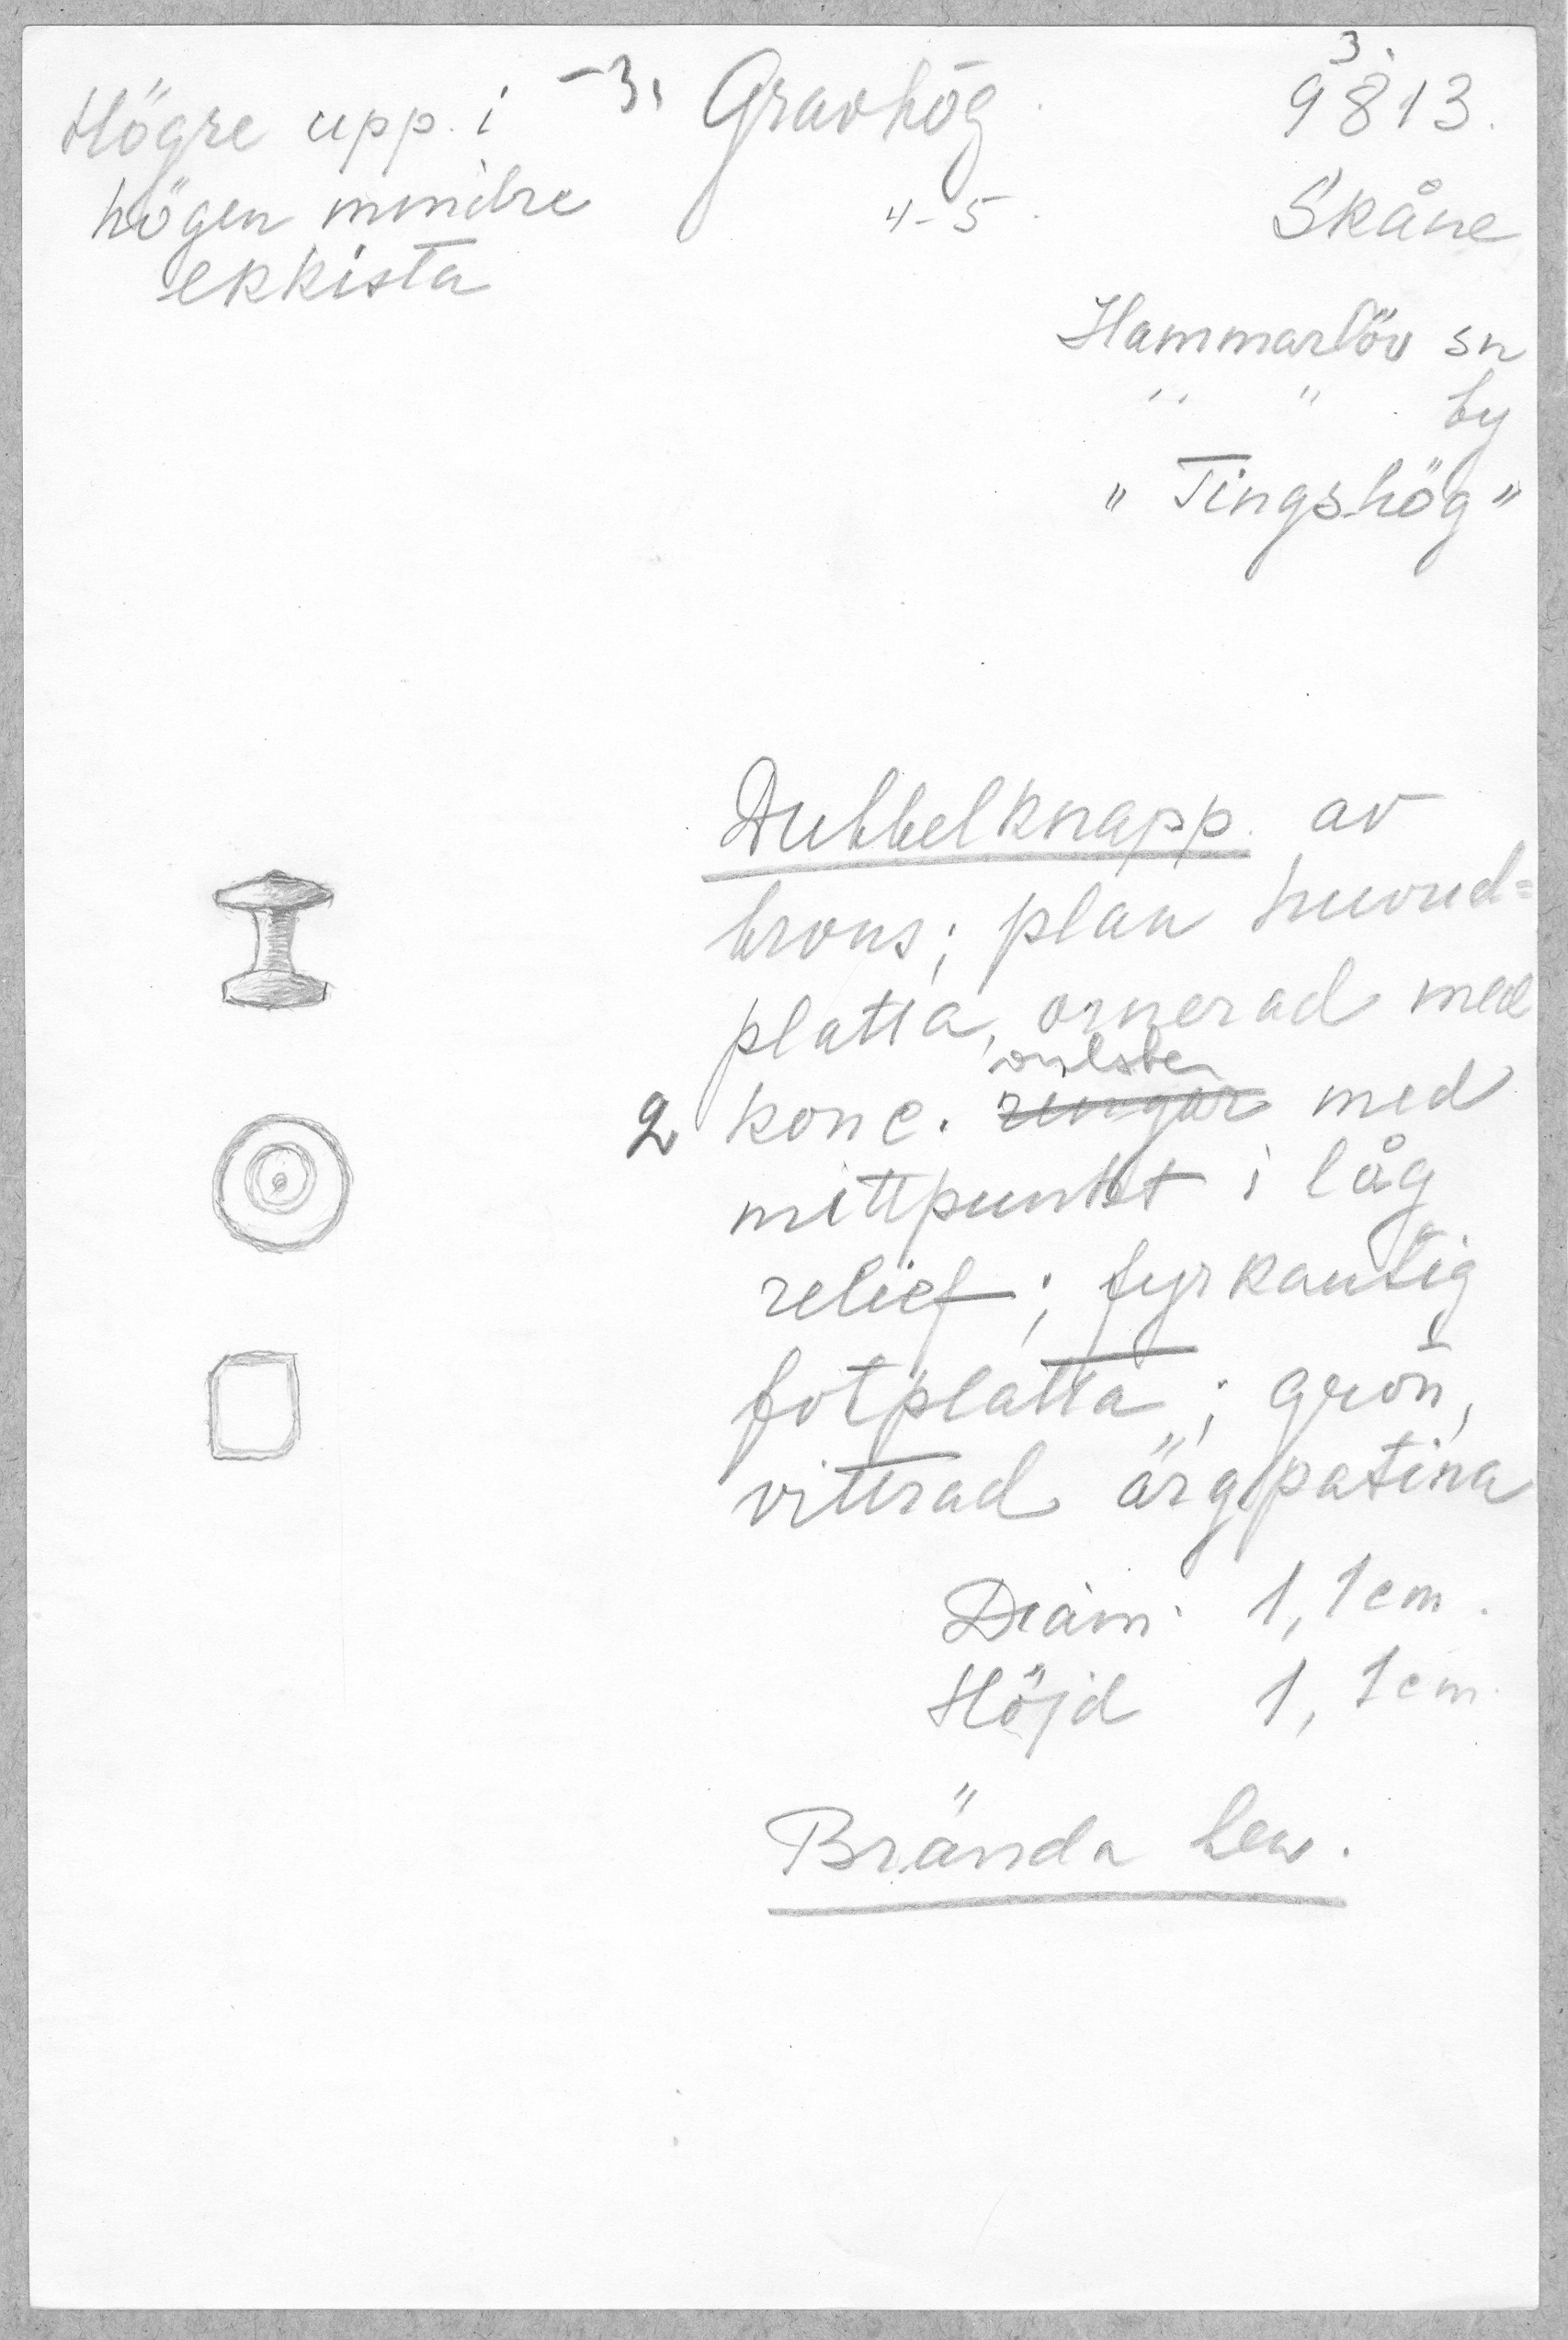 Högre upp i
högen mindre
ekkista
-3. Gravhög.
4-5.
3.
9813.
Skåne
Hammarlöv sn
" " by
"Tingshög"
Dubbelknapp av
brons; plan huvud=
platta, ornerad med
vulster
2 konc. ringar med
mittpunkt i låg
relief; fyrkantig
fotplatta; grön,
vittrad ärgpatina
Diam. 1,1 cm.
Höjd 1,1 cm.
Brända ben.